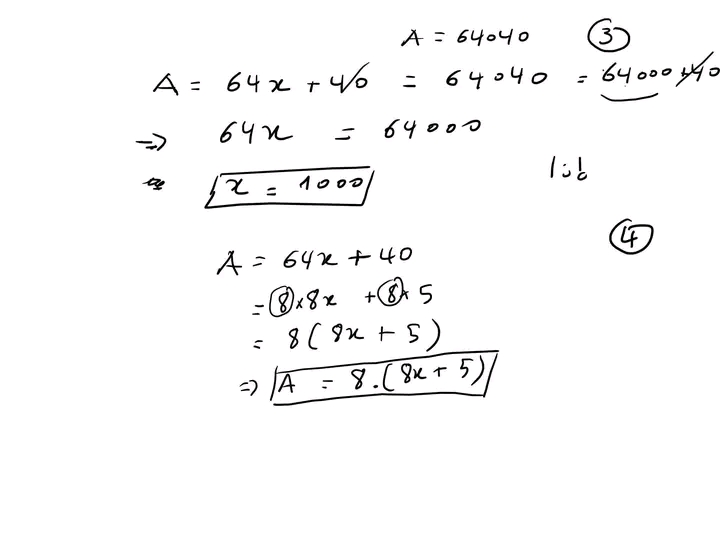 A = 64040 ③
A = 64x + 40 = 64040 = 64000 + 40
=> 64x = 64000
x = 1000
إذا
④
A = 64x + 40
= 8 × 8x + 8 × 5
= 8 ( 8x + 5 )
=> A = 8 . ( 8x + 5 )